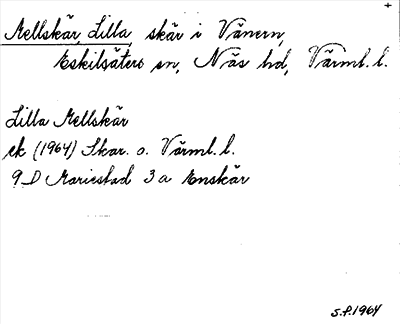 Mellskär, Lilla, skär i Vänern,
Eskilsäters sn, Näs hd, Värml. l.
Lilla Mellskär
ek (1964) Skar. o. Värml. l.
9D Mariestad 3a Enskär
S.P. 1964